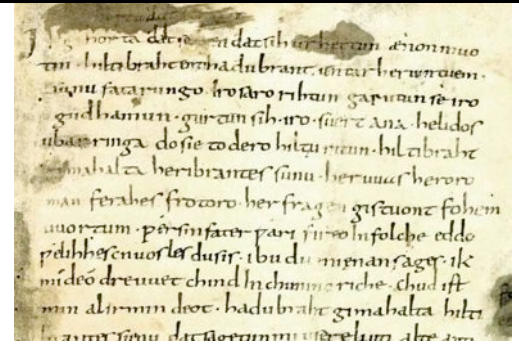 horta dat dat sih urhettun ænon muo
tin· hiltibraht enti hadubrant· untar heriun tuem·
sunu fatarungo· iro saro rihtun garutun se iro
gudhamun· gurtun sih· iro· suert ana· helidos
ubar ringa do sie to dero hiltu ritun· hiltibraht
gimahalta heribrantes sunu· her uuas heroro
man ferahes frotoro· her fragen gistuont fohem
uuortum· ƿer sin fater ƿari fireo In folche eddo
ƿelihhes cnuosles du sis· ibu du mi enan sages· ik
mi de odre uuet chind In chunincriche· chud ist
min al irmin deot· hadubraht gimahalta hilti
brantes sunu dat sagetun mi usere liuti alte anti